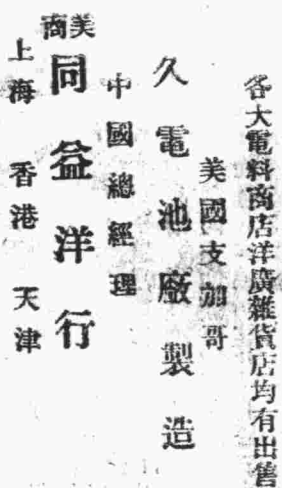 各大電料商店洋廣雜貨店均有出售
美國支加哥
久電池廠製造
中國總經理
美商
同益洋行
上海 香港 天津